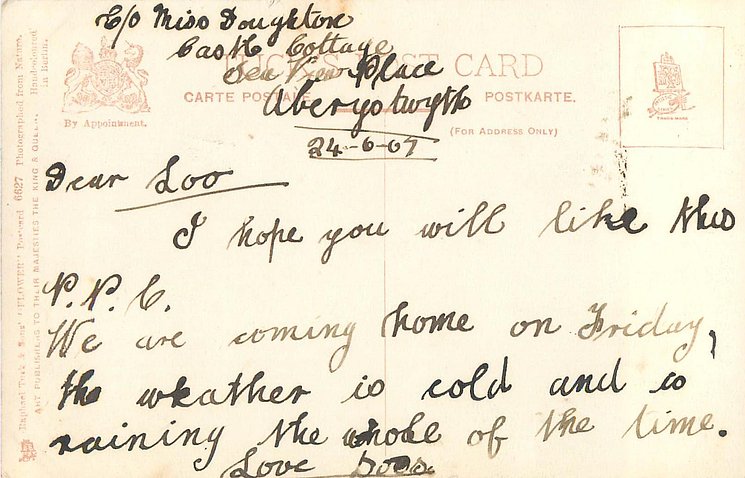 C/O Miss Doughton
Castle Cottage
Sea View Place
Aberystwyth
24-6-07
POST CARD
CARTE POSTALE
POSTKARTE.
(FOR ADDRESS ONLY)
By Appointment.
Dear Loo
I hope you will like this
P.P.C.
We are coming home on Friday,
the weather is cold and is
raining the whole of the time.
Love
Raphael Tuck & Sons' "FLOWER" Postcard 6627 Photographed from Nature.
ART PUBLISHERS TO THEIR MAJESTIES THE KING & QUEEN.
Handcoloured
in Berlin.